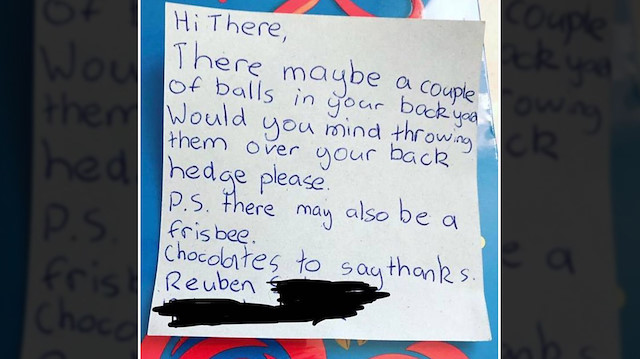 Hi There,
There maybe a couple
of balls in your backyad
Would you mind throwing
them over your back
hedge please.
P.S. there may also be a
frisbee.
Chocolates to say thanks.
Reuben